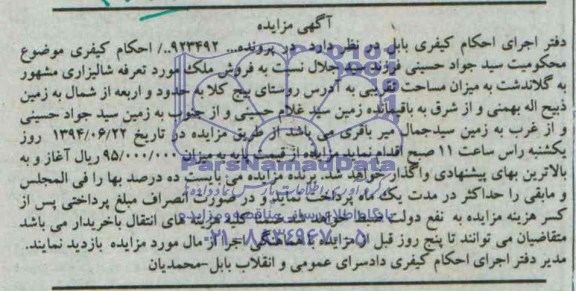 آگهی مزایده
دفتر اجرای احکام کیفری بابل در نظر دارد در پرونده... ۹۲۳۴۹۲../ احکام کیفری موضوع
محکومیت سید جواد حسینی فرزند سید جلال نسبت به فروش ملک مورد تعرفه شالیزاری مشهور
به گلاندشت به میزان مساحت تقریبی به آدرس روستای بیج کلا به حدود و اربعه از شمال به زمین
ذبیح اله بهمنی و از شرق به باقیمانده زمین سید غلام حسینی و از جنوب به زمین سید جواد حسینی
و از غرب به زمین سیدجمال میر باقری می باشد از طریق مزایده در تاریخ ۱۳۹۴/۰۶/۲۲ روز
یکشنبه راس ساعت ۱۱ صبح اقدام نماید مزایده از قیمت پایه به میزان ۹۵/۰۰۰/۰۰۰ ریال آغاز و به
بالاترین بهای پیشنهادی واگذار خواهد شد. برنده مزایده می بایست ده درصد بها را فی المجلس
و مابقی را حداکثر در مدت یک ماه پرداخت نماید و در صورت انصراف مبلغ پرداختی پس از
کسر هزینه مزایده به نفع دولت ضبط خواهد شد ضمنا کلیه هزینه های انتقال باخریدار می باشد
متقاضیان می توانند تا پنج روز قبل از مزایده با هماهنگی اجرا از مال مورد مزایده بازدید نمایند.
مدیر دفتر اجرای احکام کیفری دادسرای عمومی و انقلاب بابل-محمدیان
ParsNamadData
۰۲۱-۸۸۳۴۹۶۷۰-۵